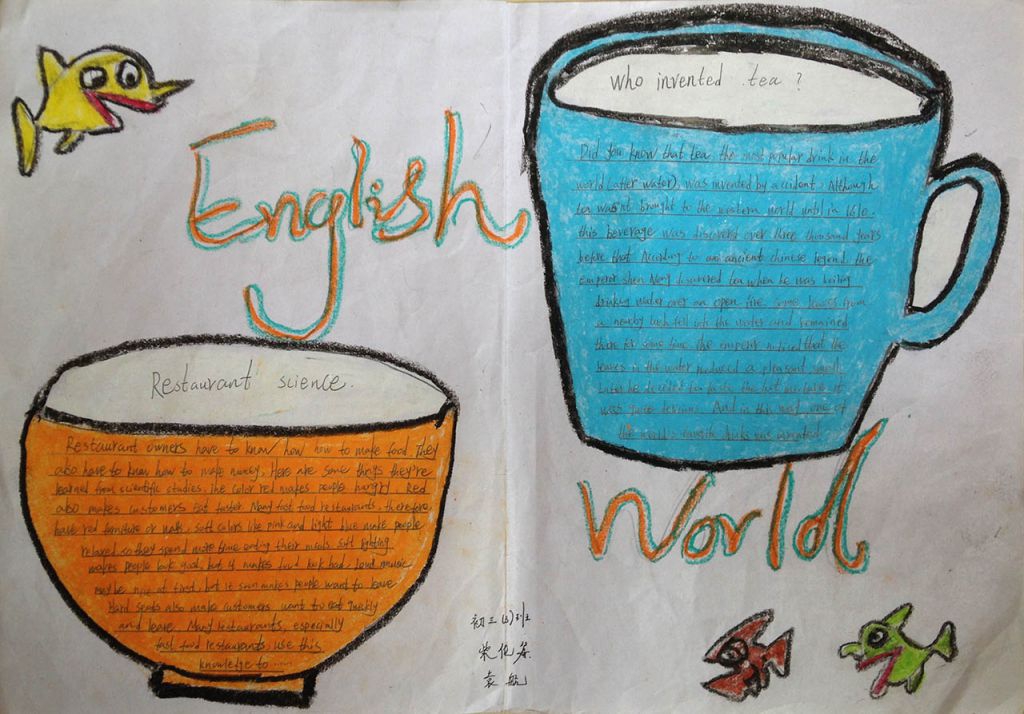 English
Who invented tea ?
Did you know that tea, the most popular drink in the
world (after water), was invented by accident. Although
tea wasn't brought to the western world until in 1610.
this beverage was discovered over three thousand years
before that. According to an ancient chinese legend. the
emperor shen Nong discovered tea when he was boiling
drinking water over an open fire. some leaves from
a nearby bush fell into the water and remained
there for some time. the emperor noticed that the
leaves in the water produced a pleasant smell.
Later he decided to taste the hot mixture. it
was quite delicious. And in this way, one of
the world's favorite drinks was invented
World
Restaurant science.
Restaurant owners have to know how how to make food. they
also have to know how to make money. Here are some things they're
learned from scientific studies. the color red makes people hungry. Red
also makes customers eat faster. Many fast food restaurants, therefore,
have red furniture or walls. soft colors like pink and light blue make people
relaxed so they spend more time eating their meals. soft lighting
makes people look good, but it makes food look bad. Loud music
may be nice at first, but it soon makes people want to leave
Hard seats also make customers want to eat quickly
and leave. Many restaurants, especially
fast food restaurants, use this
knowledge to ......
初三
班
袁航